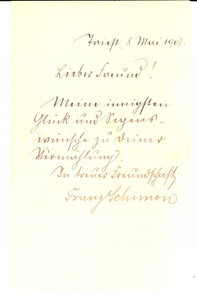 Triest, 8 Mai 1908.
Lieber Freund!
Meine innigsten
Glück und Segens-
wünsche zu Deiner
Vermählung.
In treuer Freundschaft
Franz Schimon